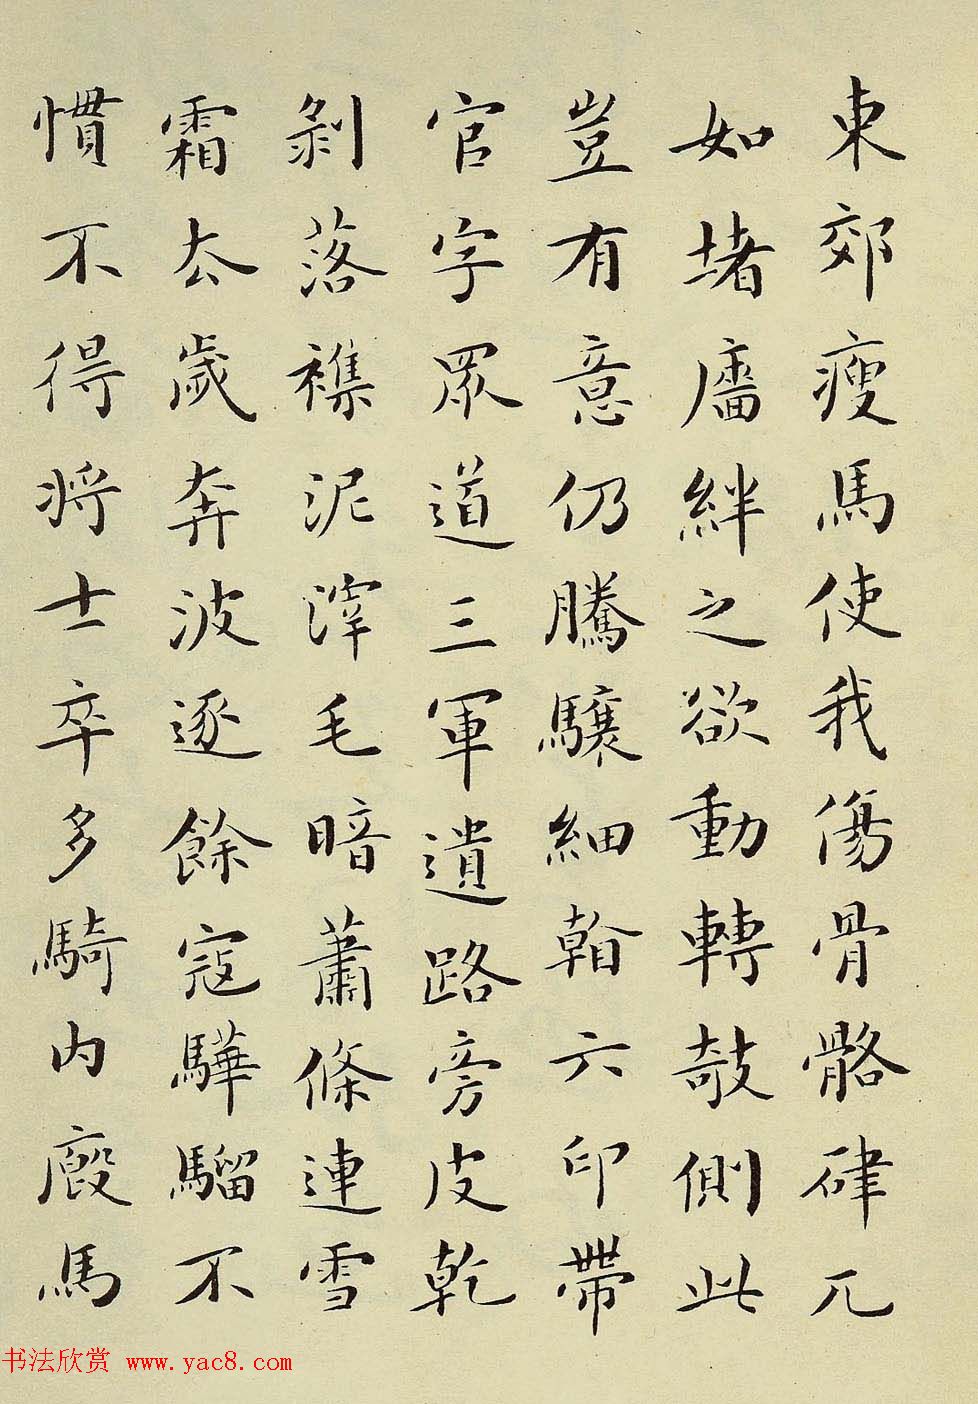 東郊瘦馬使我傷骨骼硉兀
如堵牆絆之欲動轉欹側此
豈有意仍騰驤細看六印帶
官字眾道三軍遺路旁皮乾
剝落襍泥滓毛暗蕭條連雪
霜去歲奔波逐餘寇驊騮不
慣不得將士卒多騎內廄馬
书法欣赏 www.yac8.com